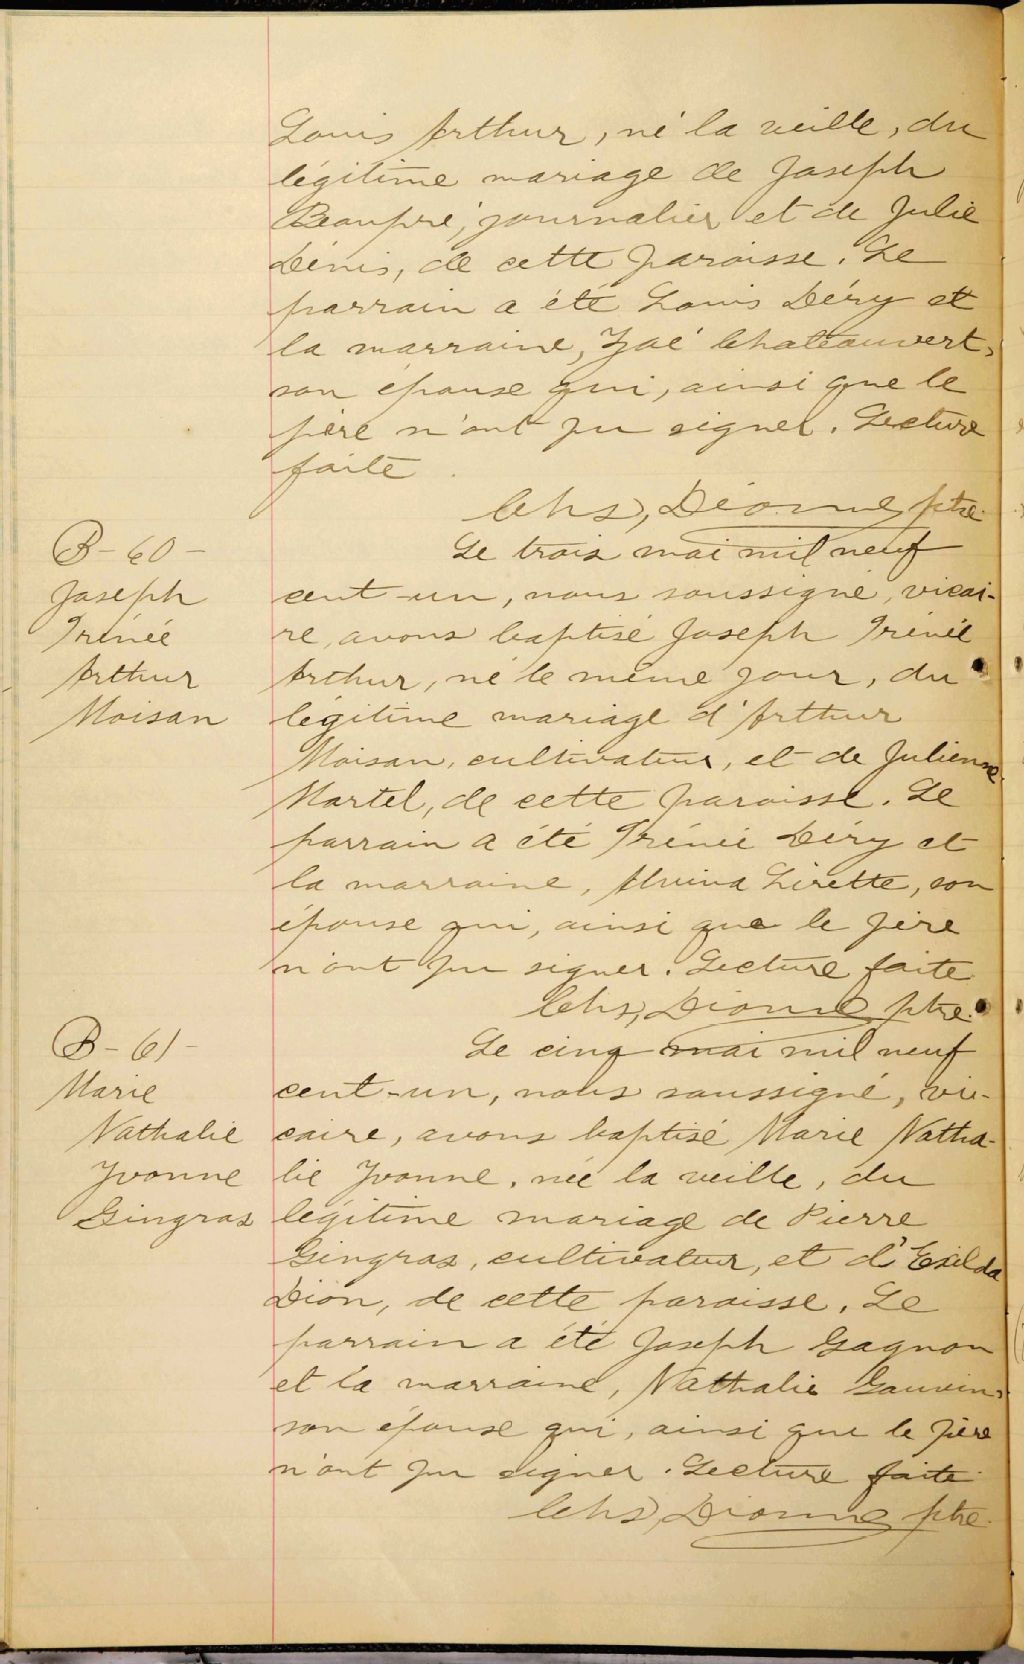 Louis Arthur, né la veille, du
légitime mariage de Joseph
Beaupré, journalier et de Julie
Dénis, de cette paroisse. Le
parrain a été Louis Déry et
la marraine, Zoé Chateauvert,
son épouse qui, ainsi que le
père n'ont pu signer. Lecture
faite.
Chs, Dionne ptre.
B-60-
Joseph
Irénée
Arthur
Moisan
Le trois mai mil neuf
cent-un, nous soussigné, vicai-
re, avons baptisé Joseph Irénée
Arthur, né le même jour, du
légitime mariage d'Arthur
Moisan, cultivateur, et de Julienne
Martel, de cette paroisse. Le
parrain a été Irénée Déry et
la marraine, Alvina Lirette, son
épouse qui, ainsi que le père
n'ont pu signer. Lecture faite
Chs, Dionne ptre.
B-61-
Marie
Nathalie
Yvonne
Gingras
Le cinq mai mil neuf
cent-un, nous soussigné, vi-
caire, avons baptisé Marie Natha-
lie Yvonne, née la veille, du
légitime mariage de Pierre
Gingras, cultivateur, et d'Exilda
Dion, de cette paroisse. Le
parrain a été Joseph Gagnon
et la marraine, Nathalie Gauvin,
son épouse qui, ainsi que le père
n'ont pu signer. Lecture faite.
Chs, Dionne ptre.